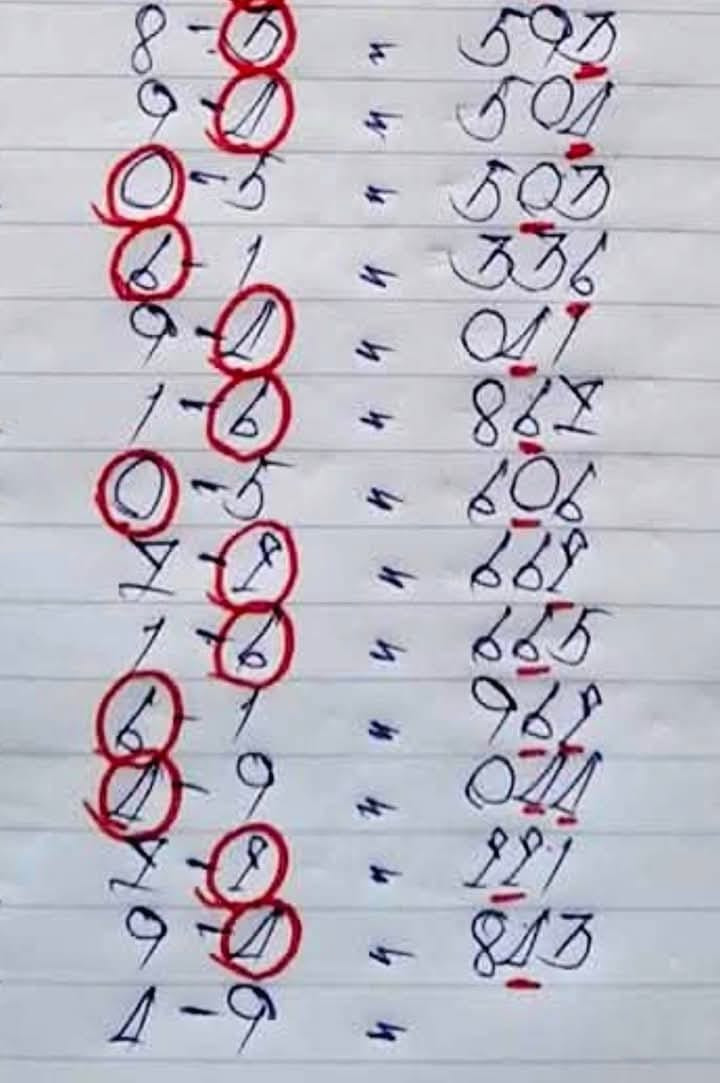 8 - 3 " 593
9 - 4 " 504
0 - 5 " 503
6 - 1 " 336
9 - 4 " 041
1 - 6 " 867
0 - 5 " 606
7 - 2 " 662
1 - 6 " 665
6 - 1 " 962
4 - 9 " 044
7 - 2 " 221
9 - 4 " 843
4 - 9 "